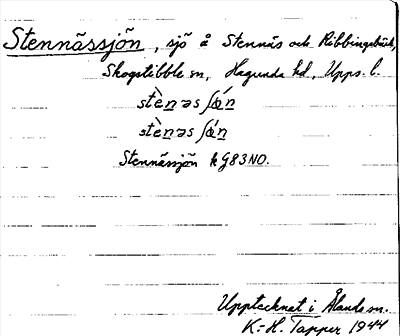 Stennässjön, sjö å Stennäs och Ribbingsbäck,
Skogstibble sn, Hagunda hd, Upps. l.
stènəs ʃǿn
stènəs ʃǿn
Stennässjön kg83NO.
Upptecknat i Ålands sn.
K.-H. Tapper 1944